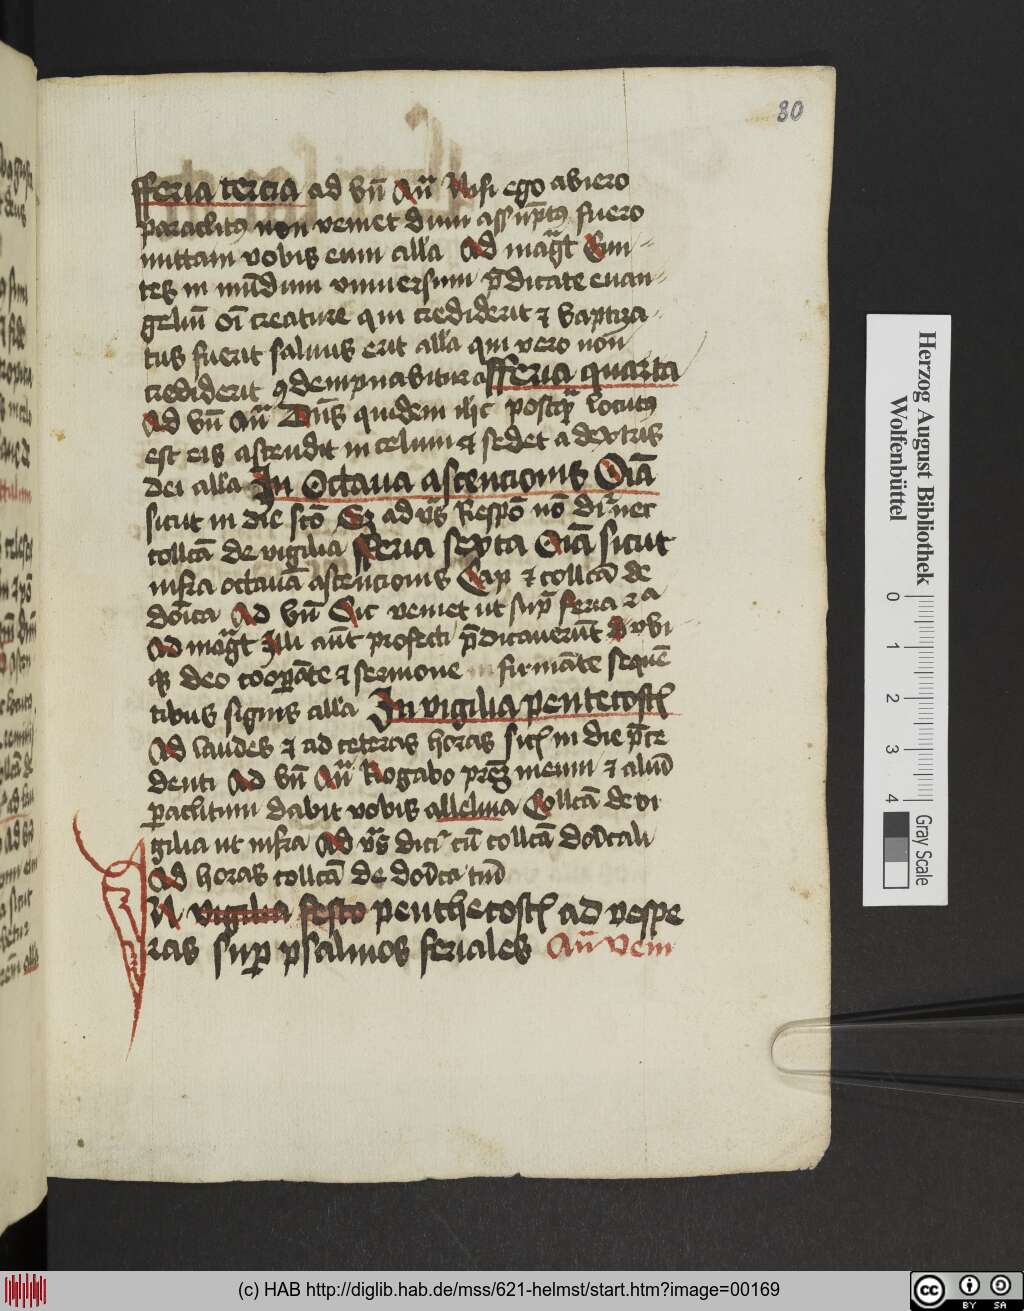 80
fferia tercia ad bn̄ An̄ Nisi ego abiero
paraclitus non veniet dum assūptus fuero
mittam vobis eum all'a Ad maḡt Eun-
tes in mūdum vniuersum p̄dicate euan-
geliū oī creature qui crediderit ⁊ baptiza-
tus fuerit saluus erit all'a qui vero non
crediderit ꝯdempnabitur a fferia quarta
Ad bn̄ An̄ Dn̄s quidem ihc postq̄ locutus
est eis ascendit in celum ⁊ sedet a dextris
dei all'a In Octaua ascencionis Oīa
sicut in die sc̄o Sz ad v̄s Respō nō dr̄ nec
collcā de vigilia fferia sexta Oīa sicut
infra octauā ascencionis Cap ⁊ collcā de
dōica Ad bn̄ Sic veniet ut sup̄ feria 2a
Ad maḡt Illi aūt profecti p̄dicauerūt vbi
qꝫ deo cooperāte ⁊ sermone firmāte sequē
tibus signis all'a In vigilia pentecost
Ad laudes ⁊ ad ceteras horas sic in die p̄ce
denti Ad bn̄ An̄ Rogabo prēꝫ meum ⁊ aliū
paclitum dabit vobis alleluia Collcā de vi
gilia ut infra Ad v̄s dicr̄ cū collcā dōicali
Ad horas collcā de dōica tm̄
IN vigilia festo penthecost ad vespe
ras sup̄ psalmos feriales An̄ Veni
Herzog August Bibliothek
Wolfenbüttel
0 1 2 3 4
Gray Scale
(c) HAB http://diglib.hab.de/mss/621-helmst/start.htm?image=00169
cc BY SA